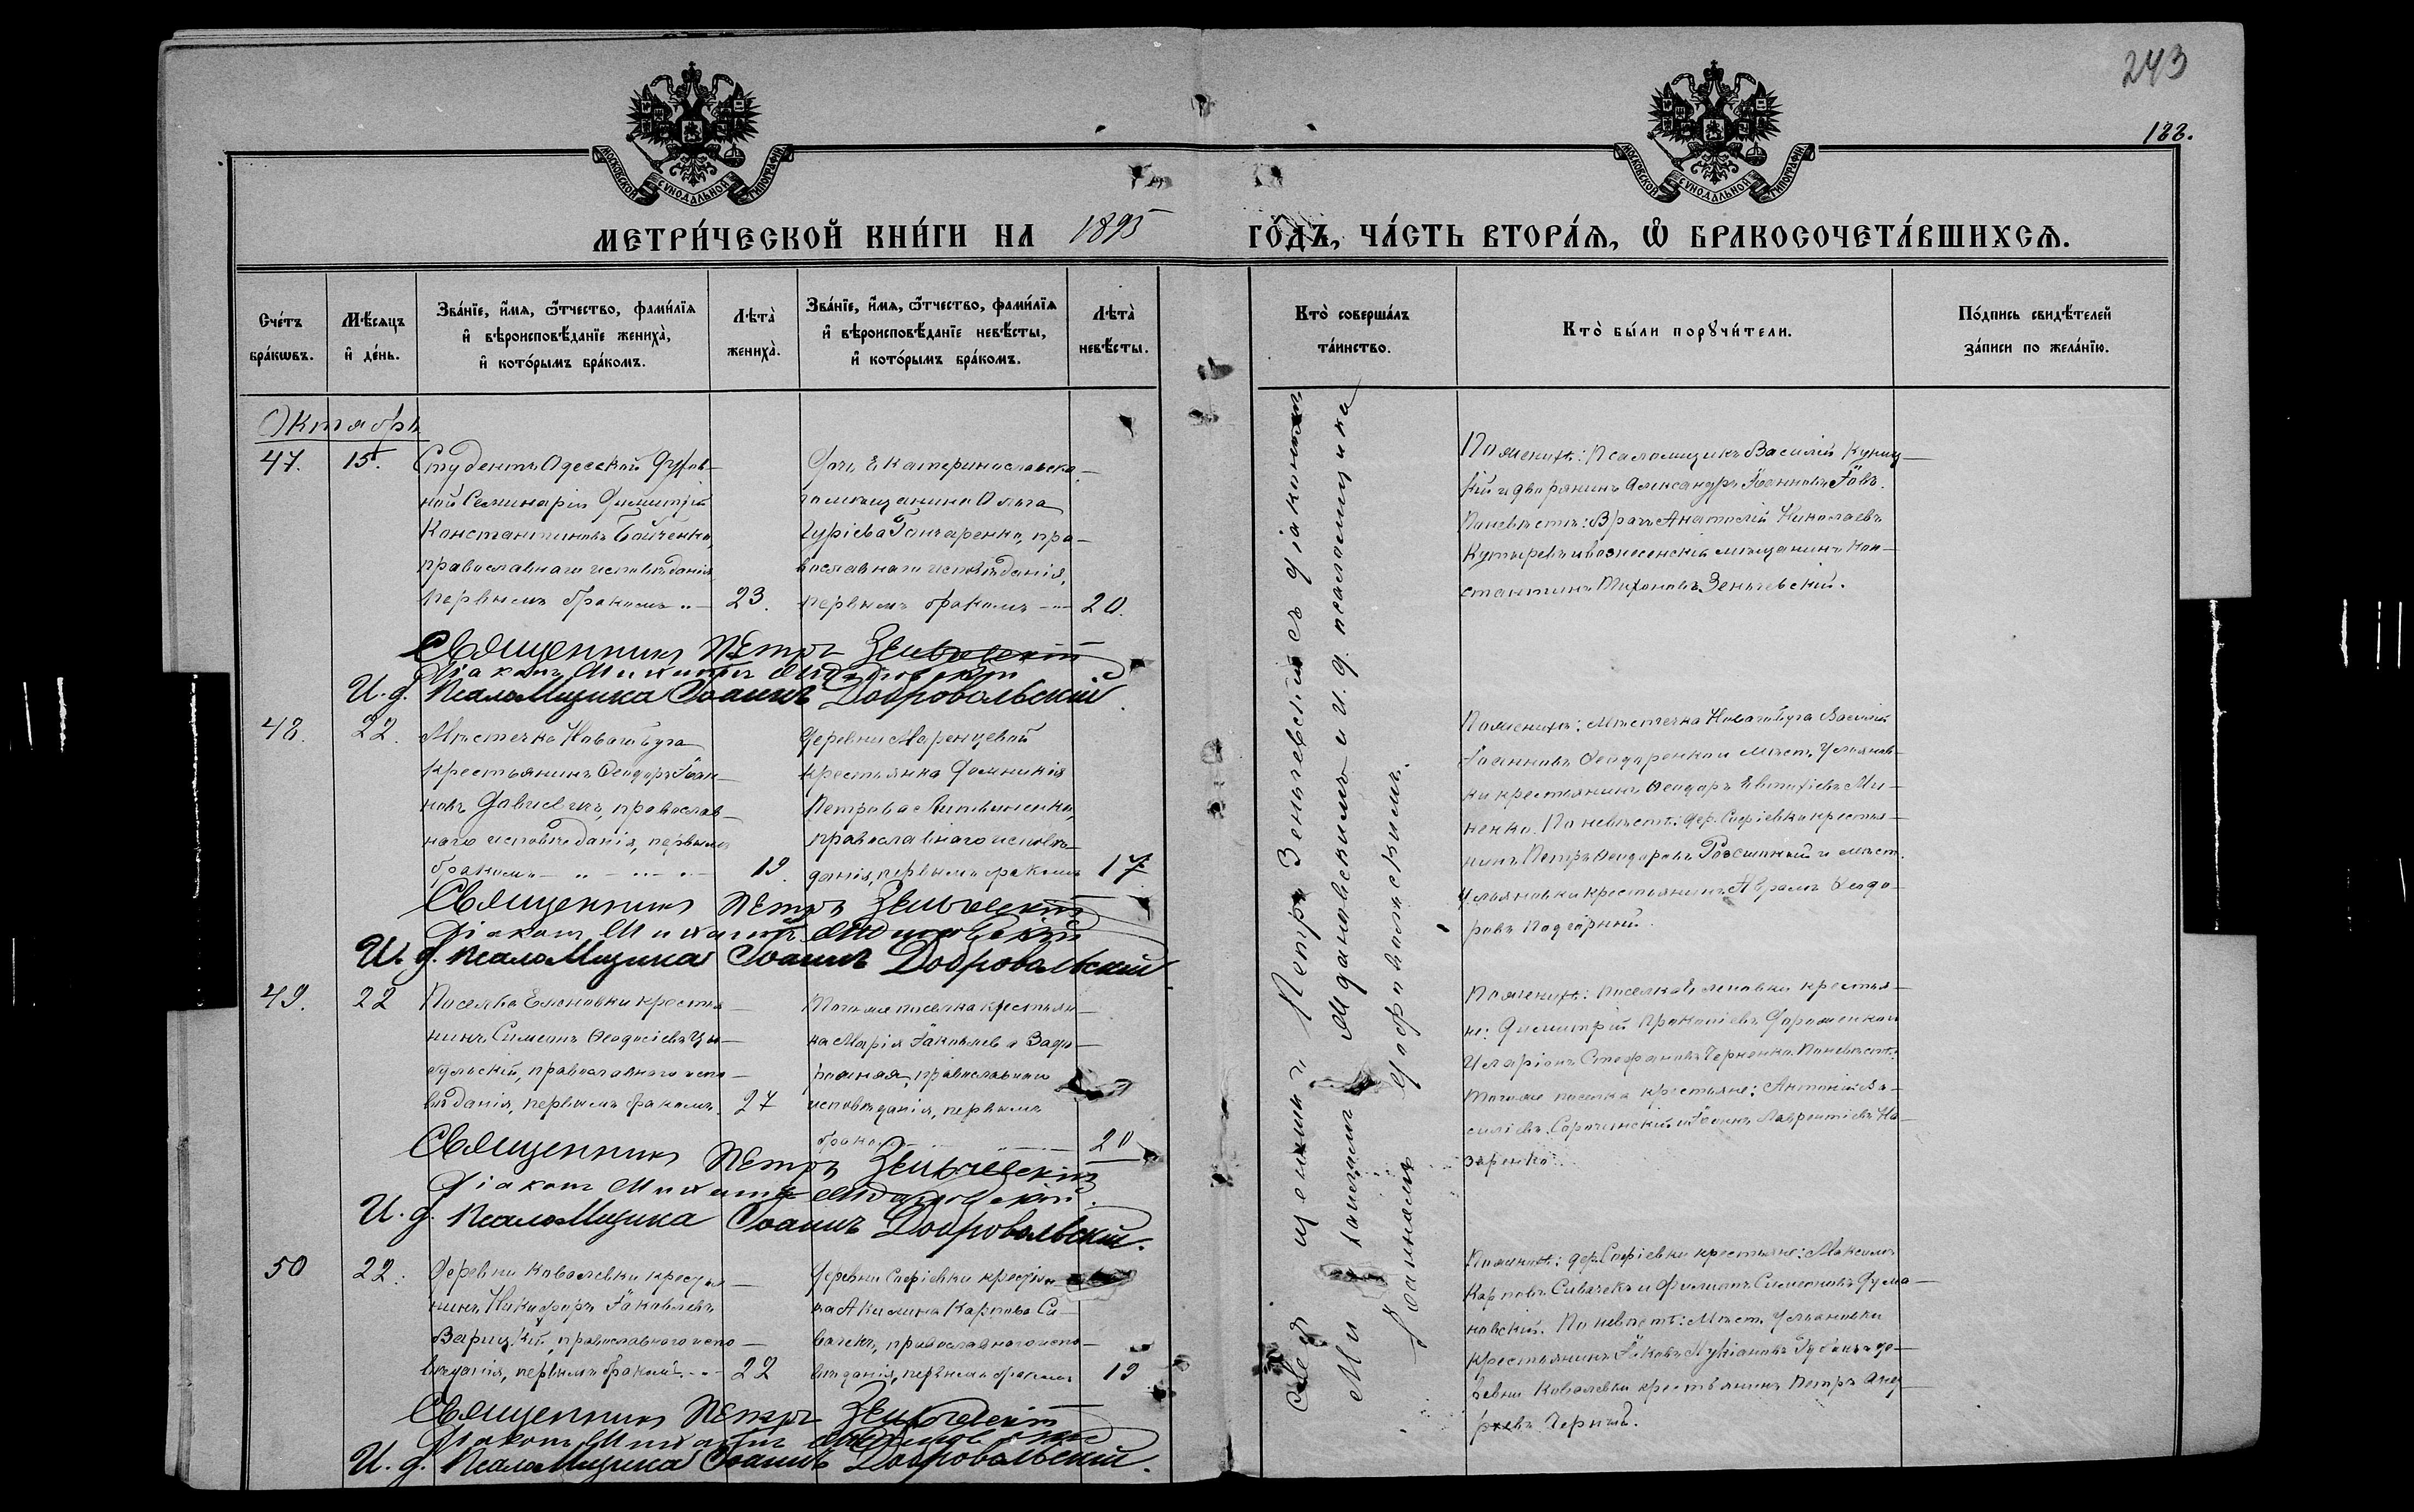 243
188.
МОСКОВСКОЙ СѴНОДАЛЬНОЙ ТИПОГРАФІИ
МОСКОВСКОЙ СѴНОДАЛЬНОЙ ТИПОГРАФІИ
МЕТРИ́ЧЕСКОЙ КНИ́ГИ НА 1895 ГО́ДЪ, ЧА́СТЬ ВТОРА́Ѧ, Ѽ БРАКОСОЧЕТА́ВШИХСѦ.
Сче́тъ бра́кѡвъ.
Мѣ́сяцъ и҆ де́нь.
Зва́нїе, и҆́мѧ, ѻ҆́тчество, фами́лїѧ
и҆ вѣроисповѣ́данїе жениха̀,
и҆ кото́рымъ бра́комъ.
Лѣта̀ жениха̀.
Зва́нїе, и҆́мѧ, ѻ҆́тчество, фами́лїѧ
и҆ вѣроисповѣ́данїе невѣ́сты,
и҆ кото́рымъ бра́комъ.
Лѣта̀ невѣ́сты.
Кто̀ соверша́лъ та́инство.
Кто̀ бы́ли порꙋчи́тели.
По́дпись свидѣ́телей за́писи по жела́нїю.
Октябрь
47. 15.
Студентъ Одесской Духов-
ной Семинаріи Димитрій
Константиновъ Бойченко,
православнаго исповѣданія,
первымъ бракомъ
23.
Дочь Екатеринославска-
го мѣщанина Ольга
Гуріева Гончаренко, пра-
вославнаго исповѣданія,
первымъ бракомъ
20.
По женихѣ: Псаломщикъ Василій Куниц-
кій и дворянинъ Александръ Іоанновъ
По невѣстѣ: Врачъ Анатолій Николаевъ
Кутыревъ и вознесенскій мѣщанинъ Кон-
стантинъ Тихоновъ Зеньчевскій.
Священникъ Петръ Зеньчевскій
Діаконъ Михаилъ
И. д. Псаломщика Іоаннъ Добровольскій
48. 22.
Мѣстечка Новаго Буга
крестьянинъ Ѳеодоръ Іоан-
новъ, православ-
наго исповѣданія, первымъ
бракомъ
19.
Деревни Маренцевой
крестьянка Домникія
Петрова Литвиненко,
православнаго исповѣ-
данія, первымъ бракомъ
17.
По женихѣ: Мѣстечка Новаго Буга Василій
Іоанновъ Ѳеодоренко и мѣст. Ульянов-
ки крестьянинъ Ѳеодоръ Евтихіевъ Ми-
ненко. По невѣстѣ: дер. Софіевки крестья-
нинъ Петръ Ѳеодоровъ и мѣст.
Ульяновки крестьянинъ Аврамъ Ѳеодо-
ровъ Подгорный.
Священникъ Петръ Зеньчевскій
Діаконъ Михаилъ
И. д. Псаломщика Іоаннъ Добровольскій
49. 22
Поселка Еленовки крестья-
нинъ Симеонъ Ѳеодосіевъ Цы-
бульскій, православнаго испо-
вѣданія, первымъ бракомъ.
27
Того же поселка крестьян-
ка Марія Іаковлева Задо-
рожная, православнаго
исповѣданія, первымъ
бракомъ
20
По женихѣ: поселка Еленовки крестья-
не: Димитрій Прокопіевъ Дорошенко и
Иларіонъ Стефановъ Черненко. По невѣстѣ:
того же поселка крестьяне: Антоній Ва-
силіевъ Сорочинскій и Іоаннъ Лаврентіевъ На-
заренко.
Священникъ Петръ Зеньчевскій
Діаконъ Михаилъ
И. д. Псаломщика Іоаннъ Добровольскій.
50 22.
Деревни Ковалевки крестья-
нинъ Никифоръ Іаковлевъ
православнаго испо-
вѣданія, первымъ бракомъ
22
Деревни Софіевки крестьян-
ка Акилина Карпова Си-
вачекъ, православнаго испо-
вѣданія, первымъ бракомъ
19
По женихѣ: дер. Софіевки крестьяне: Максимъ
Карповъ Сивачекъ и Филиппъ Симеоновъ Дума-
новскій. По невѣстѣ: Мѣст. Ульяновки
крестьянинъ Іаковъ Лукіановъ и де-
ревни Ковалевки крестьянинъ Петръ Анд-
реевъ Черный.
Священникъ Петръ Зеньчевскій
Діаконъ Михаилъ
И. д. Псаломщика Іоаннъ Добровольскій.
Священникъ Петръ Зеньчевскій съ діакономъ
Михаиломъ и и. д. псаломщика
Іоанномъ Добровольскимъ.